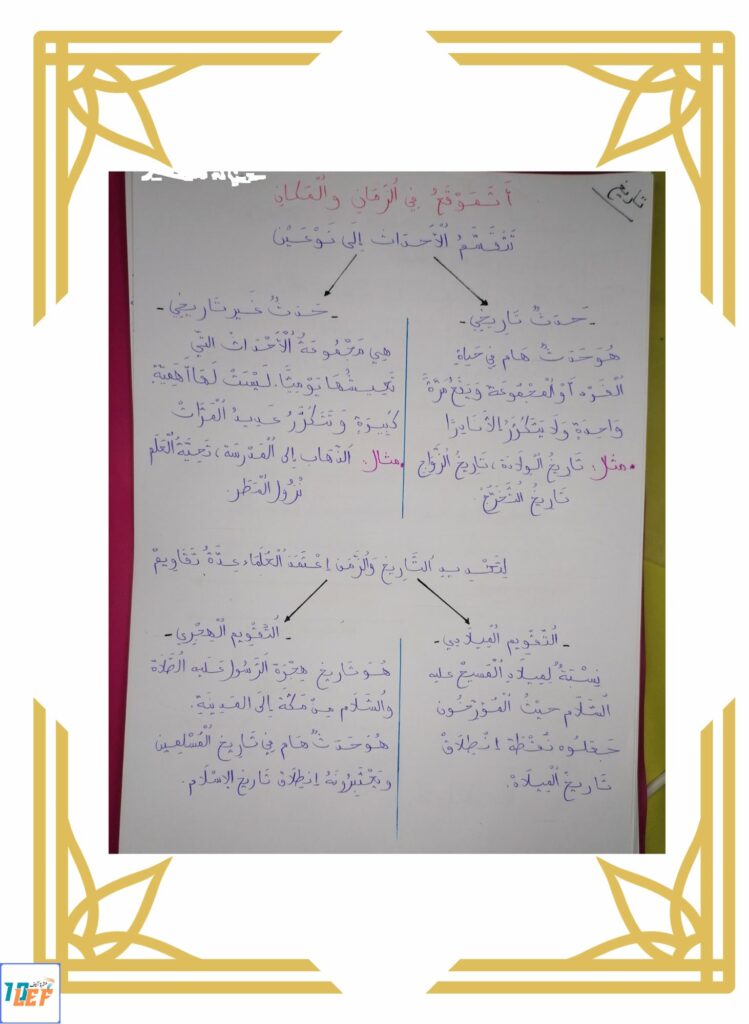 تاريخ
أَتَمَوْقَعُ فِي الزَّمَانِ وَالْمَكَانِ
تَنْقَسِمُ الْأَحْدَاثُ إِلَى نَوْعَيْن
- حَدَثٌ تَارِيخِيّ -
هُوَ حَدَثٌ هَام فِي حَيَاةِ
الْفَرْد أَوْ الْمَجْمُوعَة وَيَقَعُ مَرَّةً
وَاحِدَةٍ وَلَا يَتَكَرَّرُ إِلَّا نَادِرًا
• مثال: تَارِيخُ الْوِلَادَة، تَارِيخُ الزَّوَاج
تَارِيخُ التَّخَرُّجْ.
- حَدَثٌ غَيْر تَارِيخِيّ -
هِيَ مَجْمُوعَةُ الْأَحْدَاث الَّتِي
نَعِيشُهَا يَوْمِيًّا. لَيْسَتْ لَهَا أَهَمِّيَّةٍ
كَبِيرَةٍ وَتَتَكَرَّرُ عَدِيدُ الْمَرَّاتْ
• مثال: الذَّهَاب إِلَى الْمَدْرَسَة، تَحِيَّةُ الْعَلَم
نُزُولُ الْمَطَر.
لِتَحْدِيدِ التَّارِيخِ وَالزَّمَن اِعْتَمَدَ الْعُلَمَاء عِدَّةُ تَقَاوِيمْ
- التَّقْوِيم الْمِيلَادِي -
نِسْبَةٌ لِمِيلَادِ الْمَسِيحْ عليه
السَّلَام حَيْثُ الْمُؤَرِّخُون
جَعَلُوهُ نُقْطَة اِنْطِلَاقْ
تَارِيخْ الْمِيلَادْ.
- التَّقْوِيم الْهِجْرِي -
هُوَ تَارِيخ هِجْرَة الرَّسُول عَلَيه الصَّلَاة
والسَّلَام مِنْ مَكَّةَ إِلَى الْمَدِينَةِ.
هُوَ حَدَثٌ هَام فِي تَارِيخِ الْمُسْلِمِين
وَيَعْتَبِرُونَهُ اِنْطِلَاقْ تَارِيخ الْإِسْلَام.
10LEF